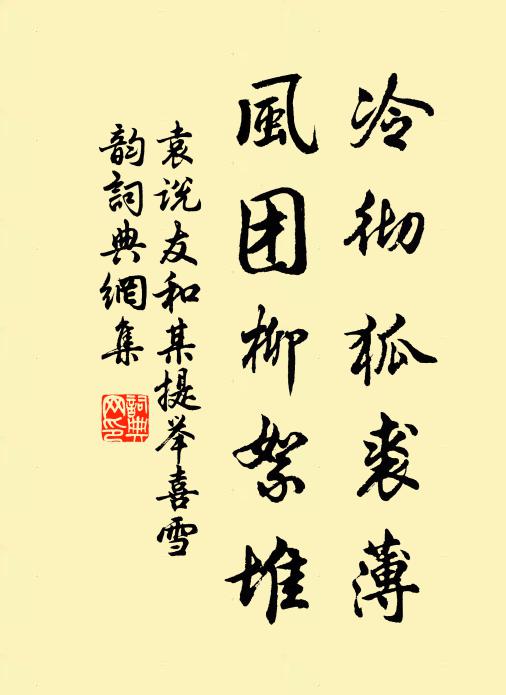 冷彻狐裘薄
風团柳絮堆
袁说友和某提举喜雪
韵詞典網集
詞典
网印